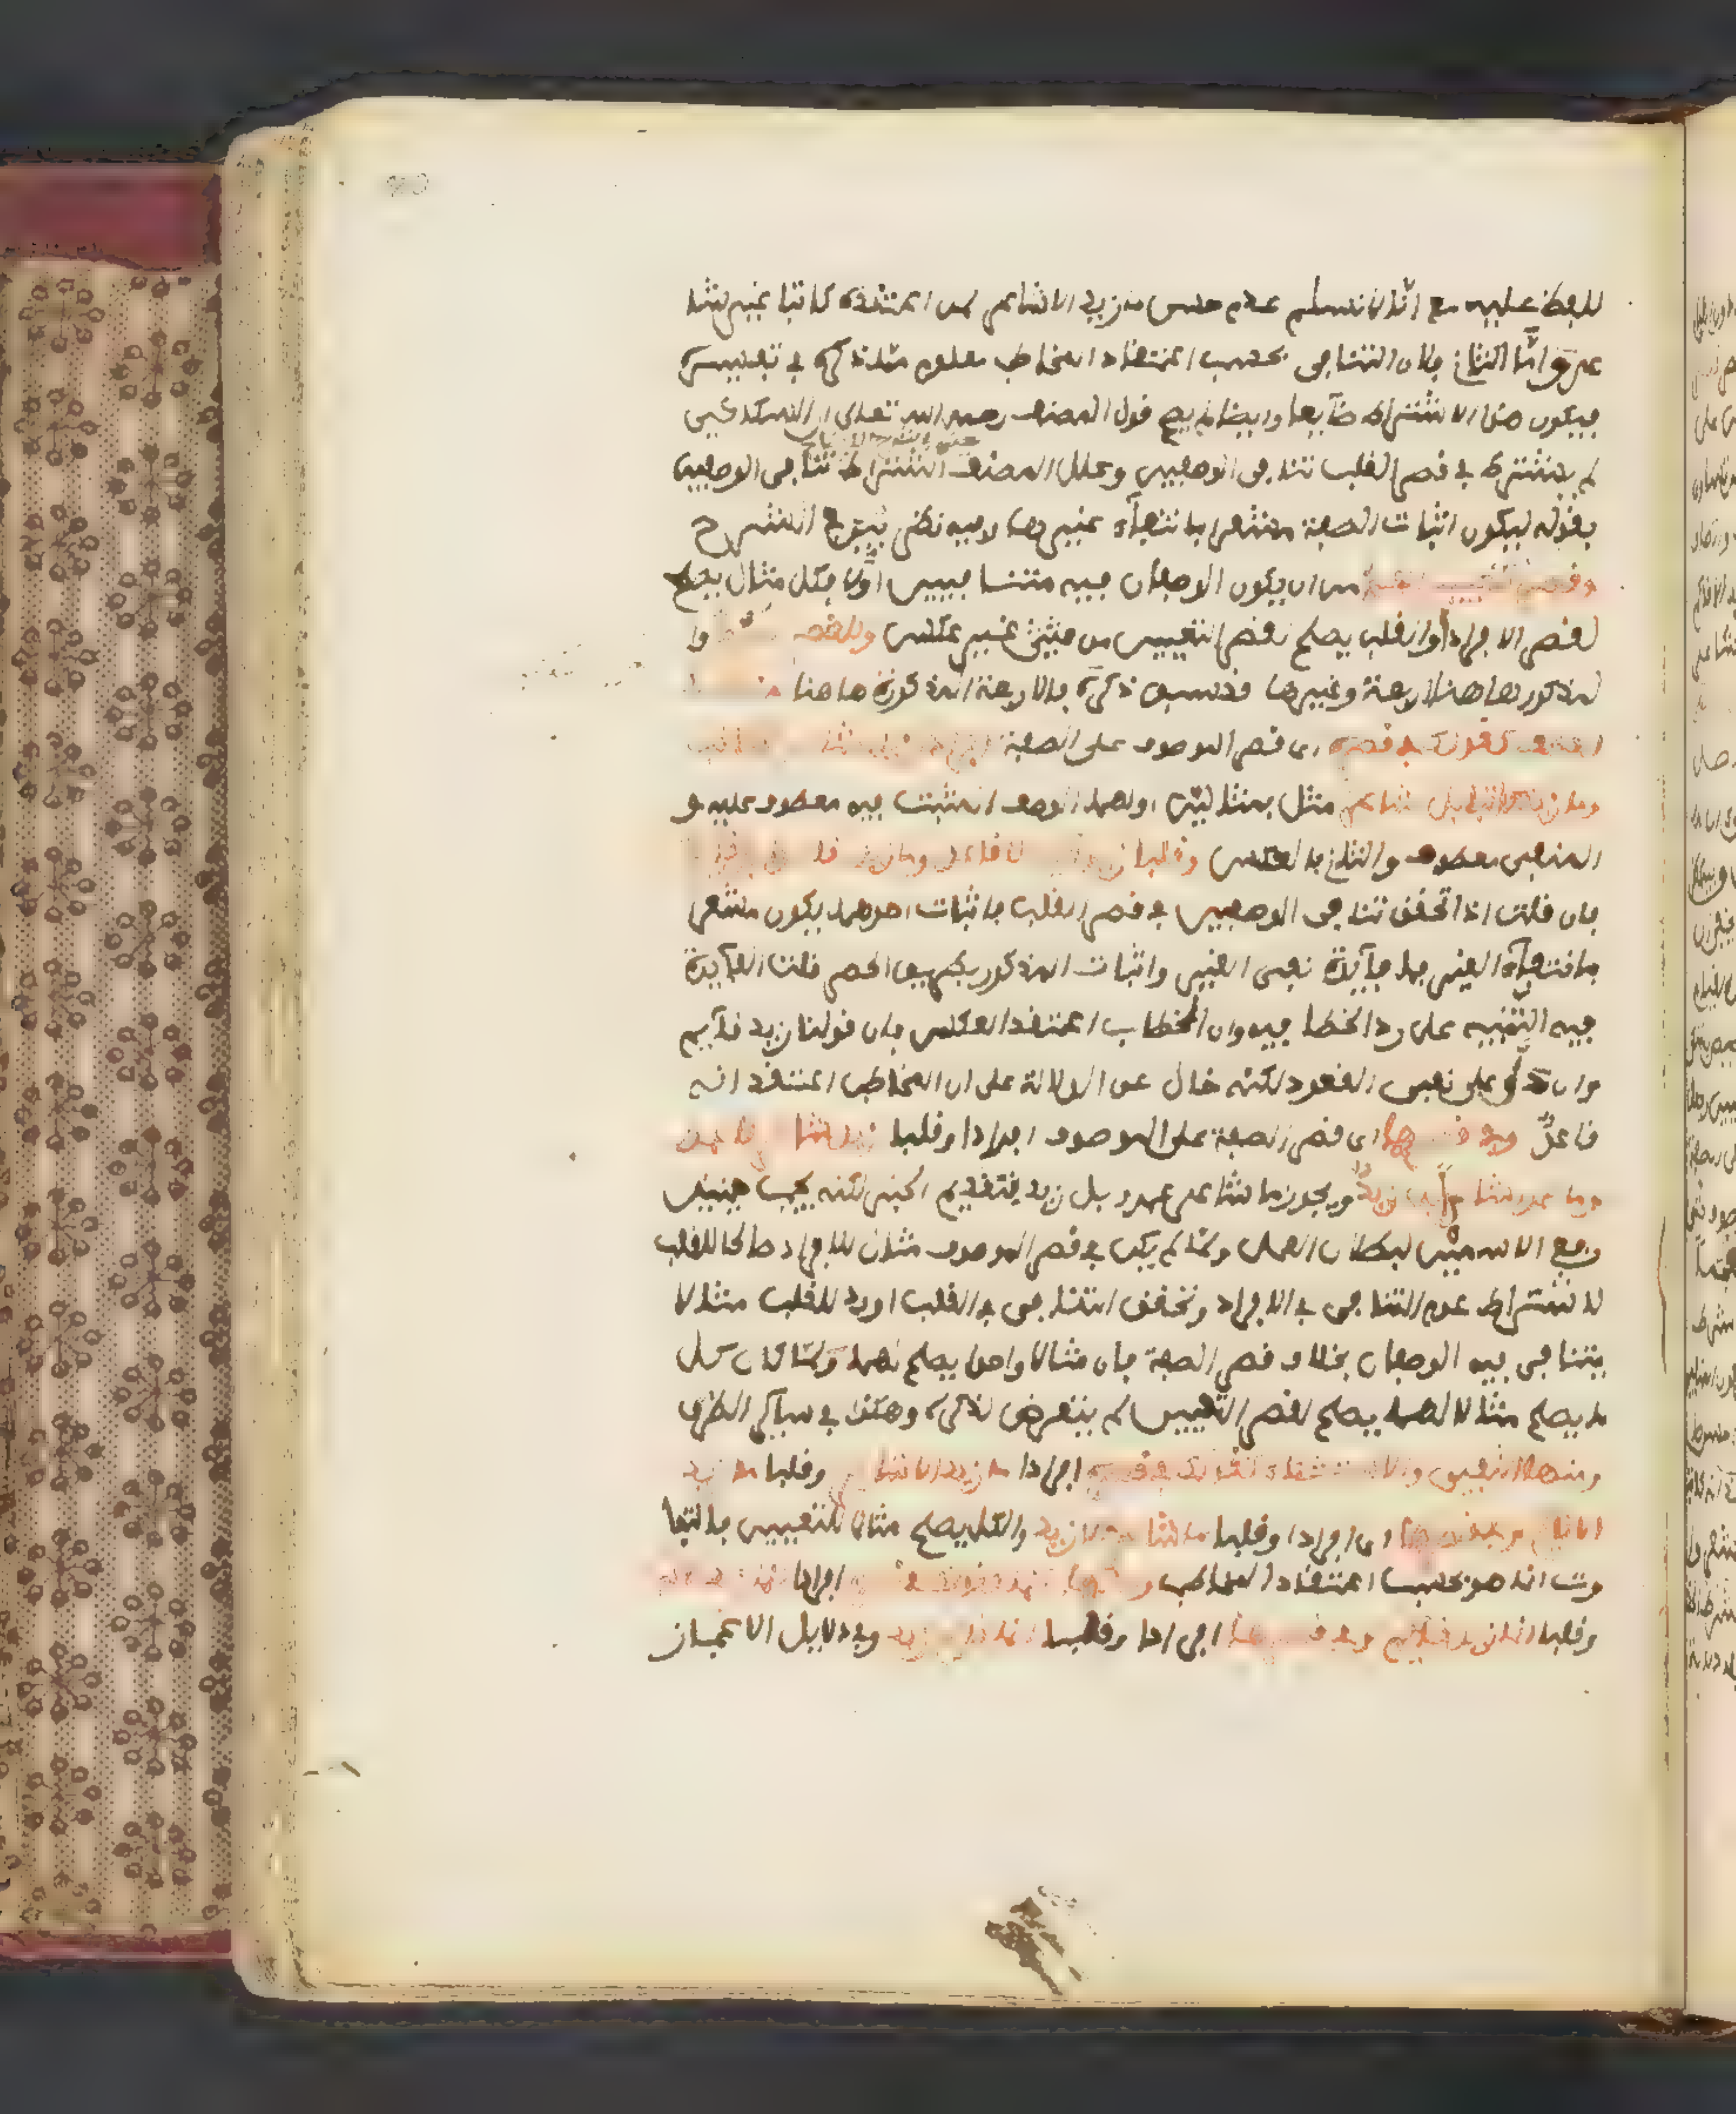 للفظ عليه مع انّا لا نسلم عدم حسن ما زيد الا شاعر لمن اعتقده كاتبا غير شا
عر و امّا الثاني فلان التنافي بحسب اعتقاد المخاطب معلوم مما ذكره في تفسيره
فيكون هذا الاشتراط ضآيعا وايضا لم يصح قول المصنف رحمه الله تعالى ان السكاكي
لم يشترط في قصر القلب تنافي الوصفين وعلل المصنف اشتراط تنافي الوصفين
بقوله ليكون اثبات الصفة مشعرا بانتفآء غيرها وفيه نظر بيّن في الشرح
وقصر التعيين اعم من ان يكون الوصفان فيه متنافيين اوّلا فكل مثال يصلح
لقصر الافراد او القلب يصلح لقصر التعيين من غير عكس وللقصر
المذكور هاهنا اربعة وغيرها قد سبق ذكره فالاربعة المذكورة هاهنا
العطف كقولك في قصره اى قصر الموصوف على الصفة
وما زيد كاتبا بل شاعر مثل بمثالين اولهما الوصف المثبت فيه معطوف عليه و
المنفي معطوف والثاني بالعكس وقلبا زيد قائم لا قاعد وما زيد
فان قلت اذا تحقق تنافي الوصفين في قصر القلب فاثبات احدهما يكون مشعرا
بانتفآء الغير فما فآيدة نفي الغير واثبات المذكور بطريق الحصر قلت الفآيدة
فيه التنبيه على رد الخطا فيه وان المخاطب اعتقد العكس فان قولنا زيد قآيم
وان دلّ على نفي القعود لكنه خال عن الدلالة على ان المخاطب اعتقد انه
قاعدٌ وفي قصرها اى قصر الصفة على الموصوف افرادا وقلبا زيد شاعر لا عمرو
وما عمرو شاعرا بل زيدٌ ويجوز ما شاعر عمرو بل زيد بتقديم الخبر لكنه يجب حينئذ
رفع الاسمين لبطلان العمل ولمّا لم يكن في قصر الموصوف مثال الافراد صالحا للقلب
لاشتراط عدم التنافي في الافراد وتحقق التنافي في القلب اورد للقلب مثالا
يتنافى فيه الوصفان بخلاف قصر الصفة فان مثالا واحدا يصلح لهما ولمّا كان كل
ما يصلح مثالا لهما يصلح لقصر التعيين لم يتعرض لذكره وهكذا في سآير الطرق
ومنها النفي والاستثناء كقولك في قصره افرادا ما زيد الا شاعر وقلبا ما زيد
الا قائم وفي قصرها اى افرادا وقلبا ما شاعر الا زيد والكل يصلح مثالا للتعيين بالتفا
وت انما هو بحسب اعتقاد المخاطب ومنها انما كقولك في قصره افرادا انما زيد
وقلبا انما زيد قآيم وفي قصرها افرادا وقلبا انما قائم زيد وفي دلايل الاعجاز